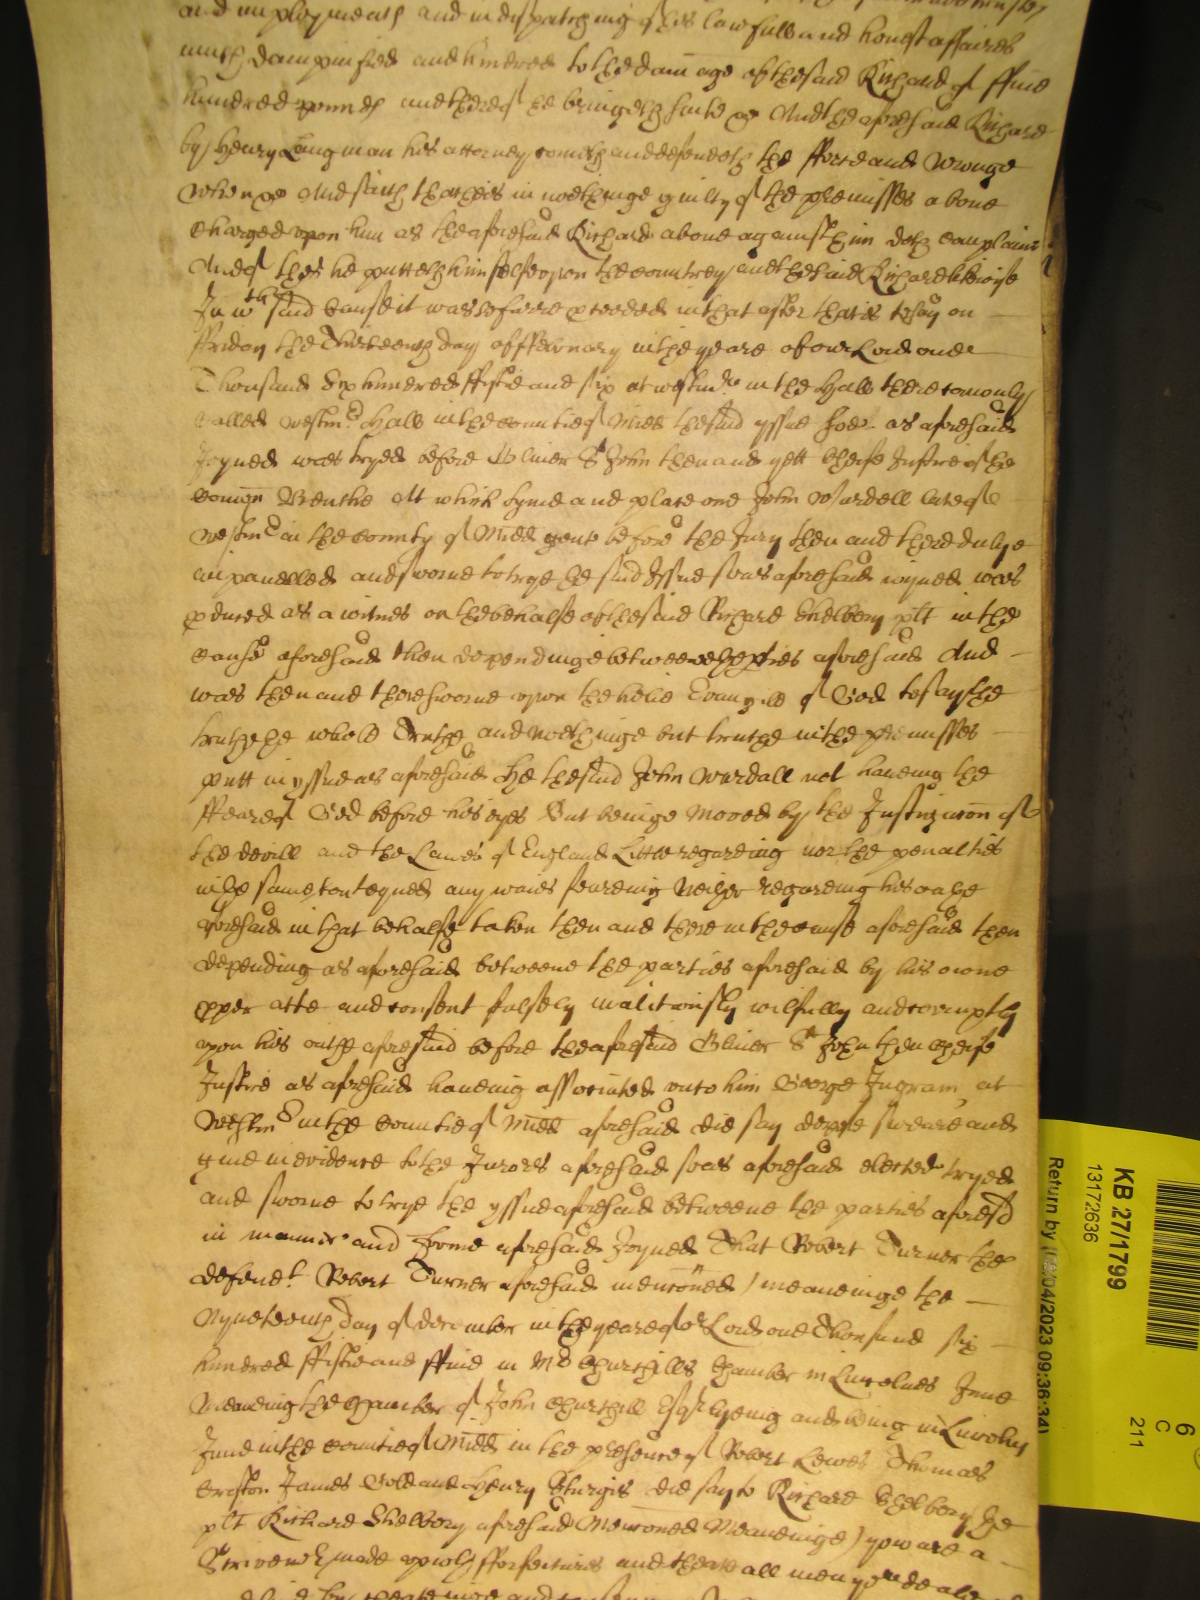 and imploymentes and in dispatching of his lawfull and honest affaires
much dampnified and hindred to the damage of the said Richard of ffive
hundred pounds and thereof he bringeth suite &c And the aforesaid Richard
by Henry Langman his attorney cometh and defendeth the fforce and wronge
when &c And saith that hee is in nothinge guilty of the premisses above
charged upon him as the aforesaid Richard above against him doth complaine
And of this he putteth himselfe upon the countrey and the said Richard likewise
In wch said cause it was soe farre proceeded in that after that is to say on
ffriday the Thirteenth day of ffebruary in the yeare of our Lord one
Thousand Six hundred ffiftie and six at westmr in the Hall there comonly
called westmr Hall in the countie of Midd the said yssue soe as aforesaid
Joyned was tryed before Oliver St John then and yett Cheife Justice of the
comon Benche At which tyme and place one John Wardell late of
westmr in the county of Midd gent before the Jury then and there dulye
impanelled and sworne to trye the said Issue soe as aforesaid ioyned was
pduced as a witnes on the behalfe of the said Richard Shelbery plt in the
cause aforesaid then dependinge betweene the pties aforesaid And
was then and there sworne upon the holie Evangells of God to say the
truth the whole Truthe and nothinge but truthe in the premisses
putt in yssue as aforesaid He the said John Wardall not haveing the
ffeare of God before his eyes But beinge moved by the Instigacon of
the devill and the Lawes of England Little regarding nor the penalties
in the same conteyned any waies feareing Neither regarding his oathe
aforesaid in that behalfe taken then and there in the cause aforesaid then
depending as aforesaid betweene the parties aforesaid by his owne
pper acte and consent falsely malitiously wilfully and corruptly
upon his oathe aforesaid before the aforesaid Oliver St John then cheife
Justice as aforesaid haveing associated unto him George Ingram at
Westmr in the countie of Midd aforesaid did say depose sweare and
give in evidence to the Jurors aforesaid soe as aforesaid elected tryed
and sworne to trye the yssue aforesaid betweene the parties aforesd
in manner and forme aforesaid Joyned That Robert Turner the
defendt Robert Turner aforesaid mencioned meaneinge the
Nyneteenth day of december in the yeare of or Lord one Thousand six
hundred ffiftie and ffive in Mr Churchills Chamber in Lincolnes Inne
Meaneing the Chamber of John Churchill Esqr lyeing and being in Lincolns
Inne in the countie of Midd in the presence of Robert Lewes Thomas
James Gold and Henry Sturgis did say to Richard Shelbery the
plt Richard Shelbery aforesaid Mencioned Meaneinge) you are a
Scrivenr made up wth fforfeitures and theate all men you deale
KB 27/1799
13172636
Return by (04/2023 09:36:34)
6
C
211